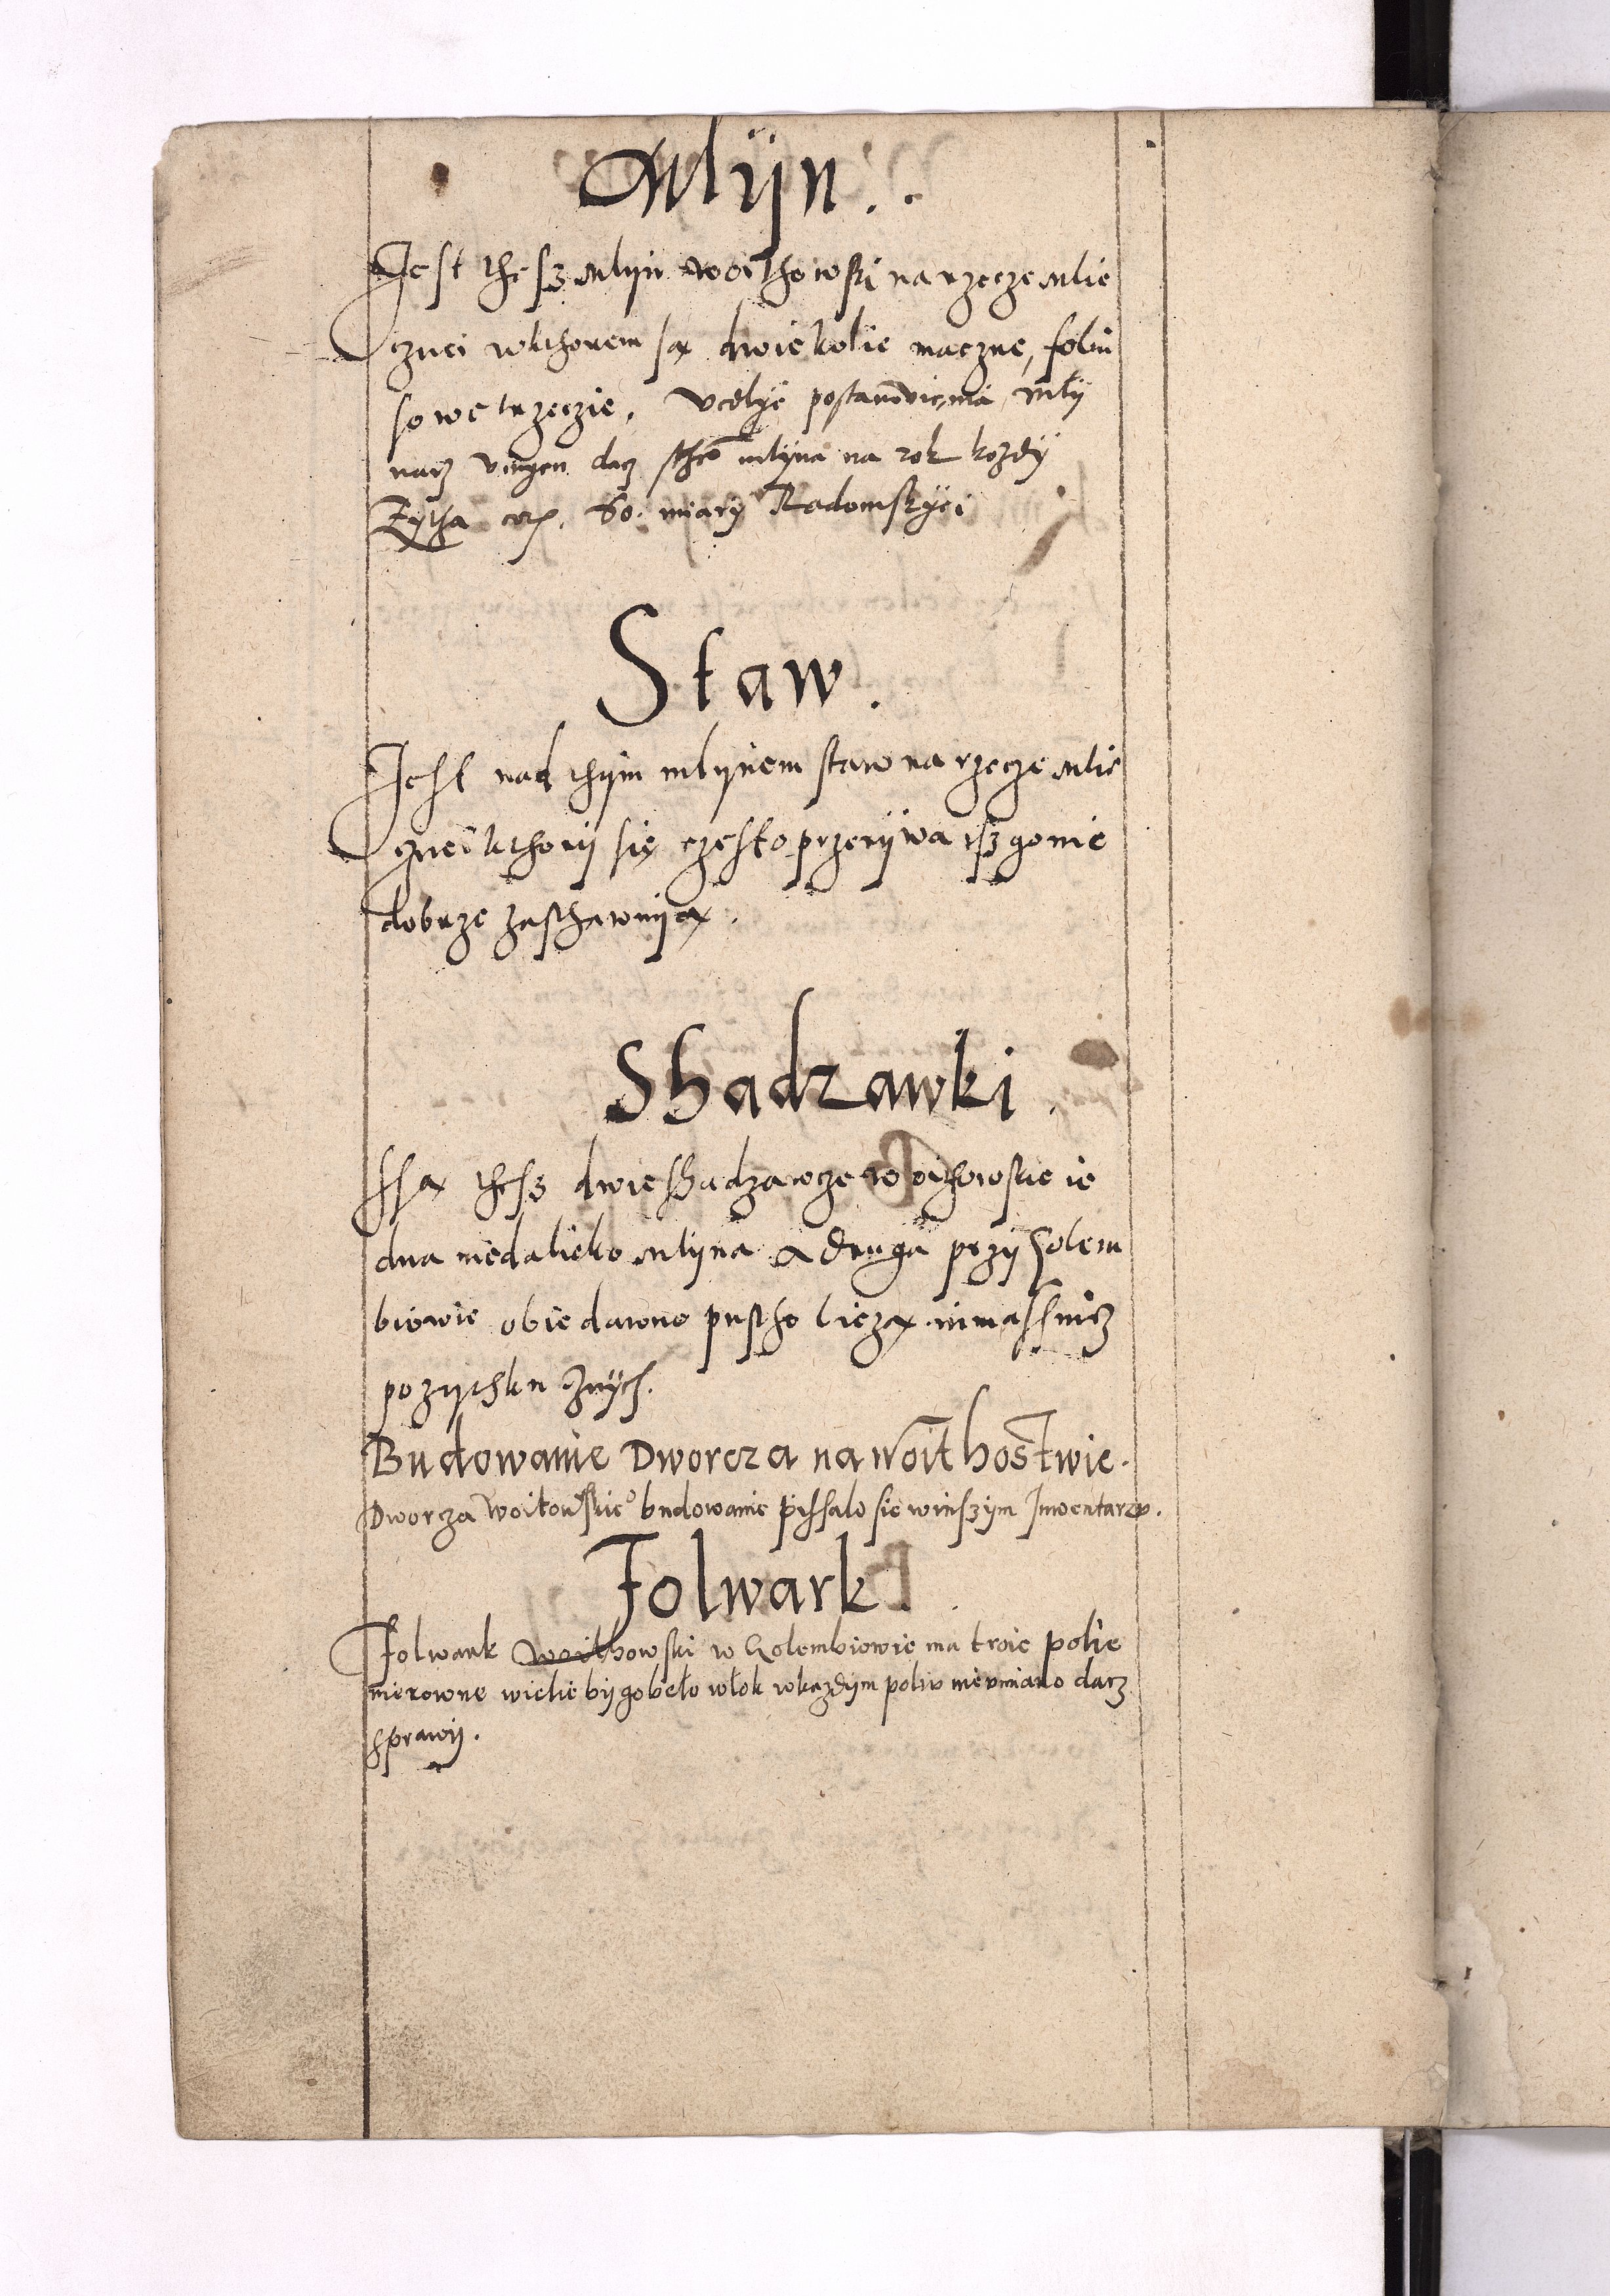 Mlyn.
Jest thesz mlyn woithowski na rzecze mlie
cznei wkthorem są dwie kolie maczne, folu
sowe trzeczie, postanowienia mly
narz dacz stheo mlyna na rok kozdy
Zytha cor. 60. miary Radomskyei
Staw.
Jeszt nad thym mlynem staw na rzecze mlie
cznei kthory się czesto przerywa isz go nie
dobrze zasthawuyą.
Shadzawki.
Ssą thesz dwie shadzawcze woithowskie ie
dna niedalieko mlyna a druga przy Golem
biowie obie dawno pustho liezą. nimassnicz
pozythku znych.
Budowanie Dworcza na Woithostwie.
Dworcza Woitowskieo budowanie pissalo sie winszym Inwentarzu.
Folwark.
Folwark Woithowski w Golembiowie ma troie polie
nierowne wielie by go beło włok wkazdym poliu nieumiano dacz
sprawy.